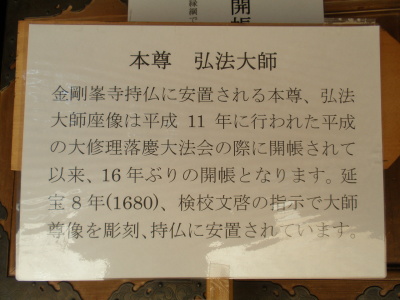 開帳
本尊　弘法大師
金剛峯寺持仏に安置される本尊、弘法
大師座像は平成 11 年に行われた平成
の大修理落慶大法会の際に開帳されて
以来、16 年ぶりの開帳となります。延
宝 8 年(1680)、検校文啓の指示で大師
尊像を彫刻、持仏に安置されています。